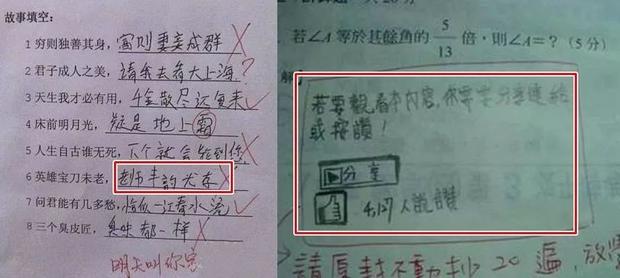 故事填空:
1 穷则独善其身，富则妻妾成群
2 君子成人之美，请 去 大上海?
3 天生我才必有用，千金散尽还复来
4 床前明月光，疑是地上
5 人生自古谁无死，下个就会轮到你
6 英雄宝刀未老，老师丰韵犹存
7 问君能有几多愁，恰似一江春水流
8 三个臭皮匠，臭味都一样
明天叫你家
若∠A 等於其餘角的 5/13 倍，則∠A=？(5分)
若要觀看本內容，你需要分享連結
或按讚！
分享
人說讚
請原封不動抄 20 遍，放學